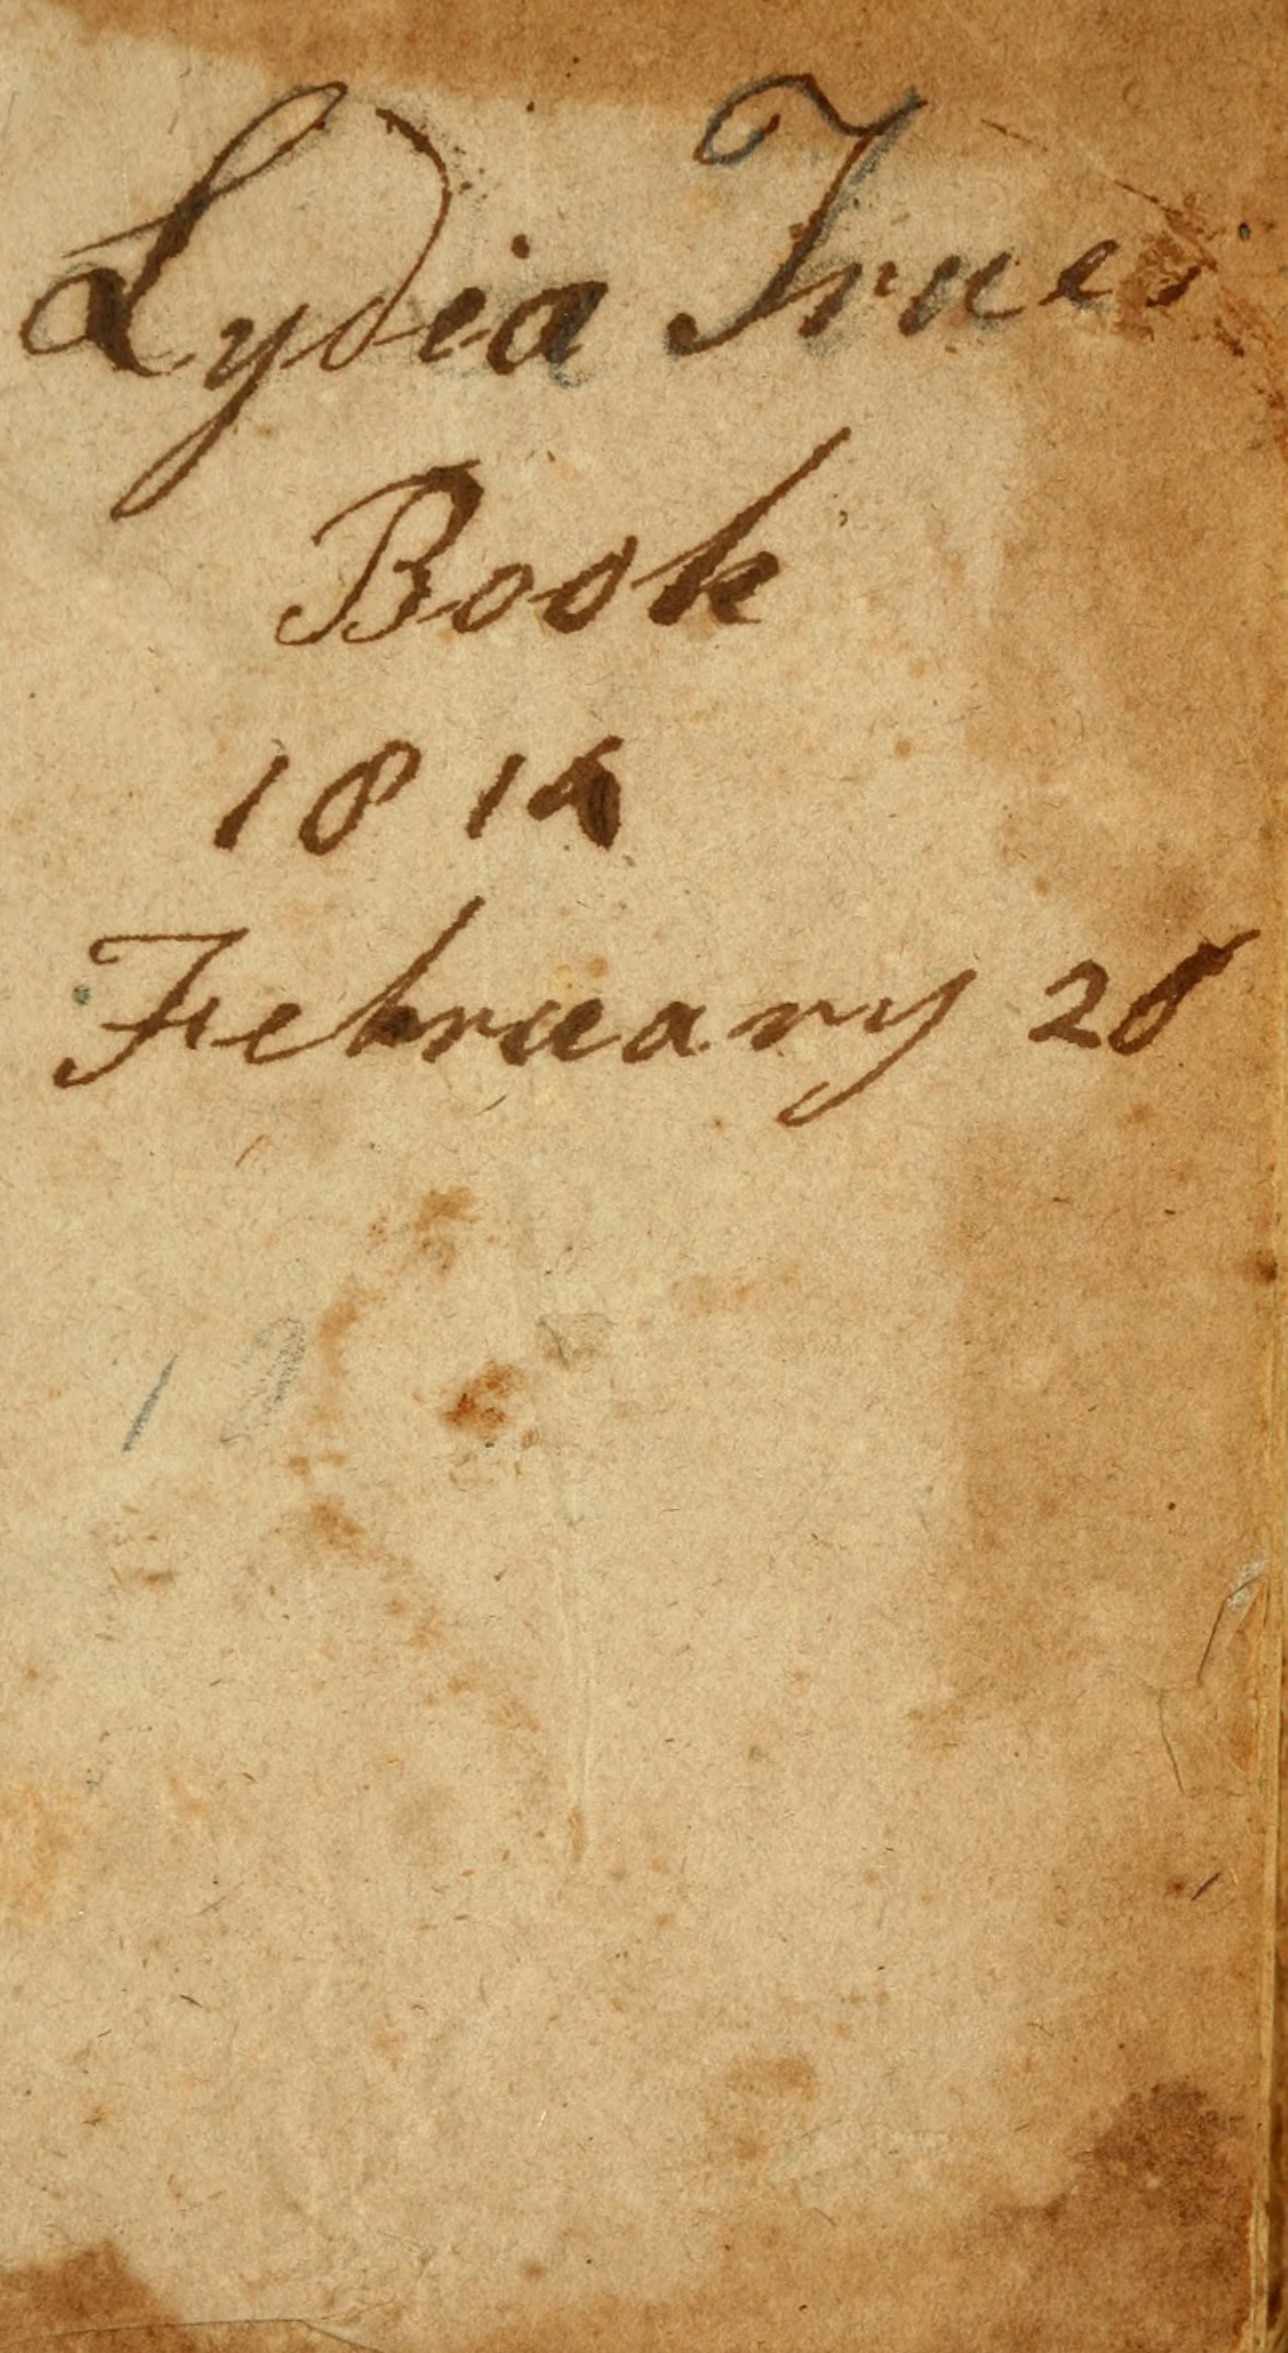 Lydia Trues
Book
1814
February 28